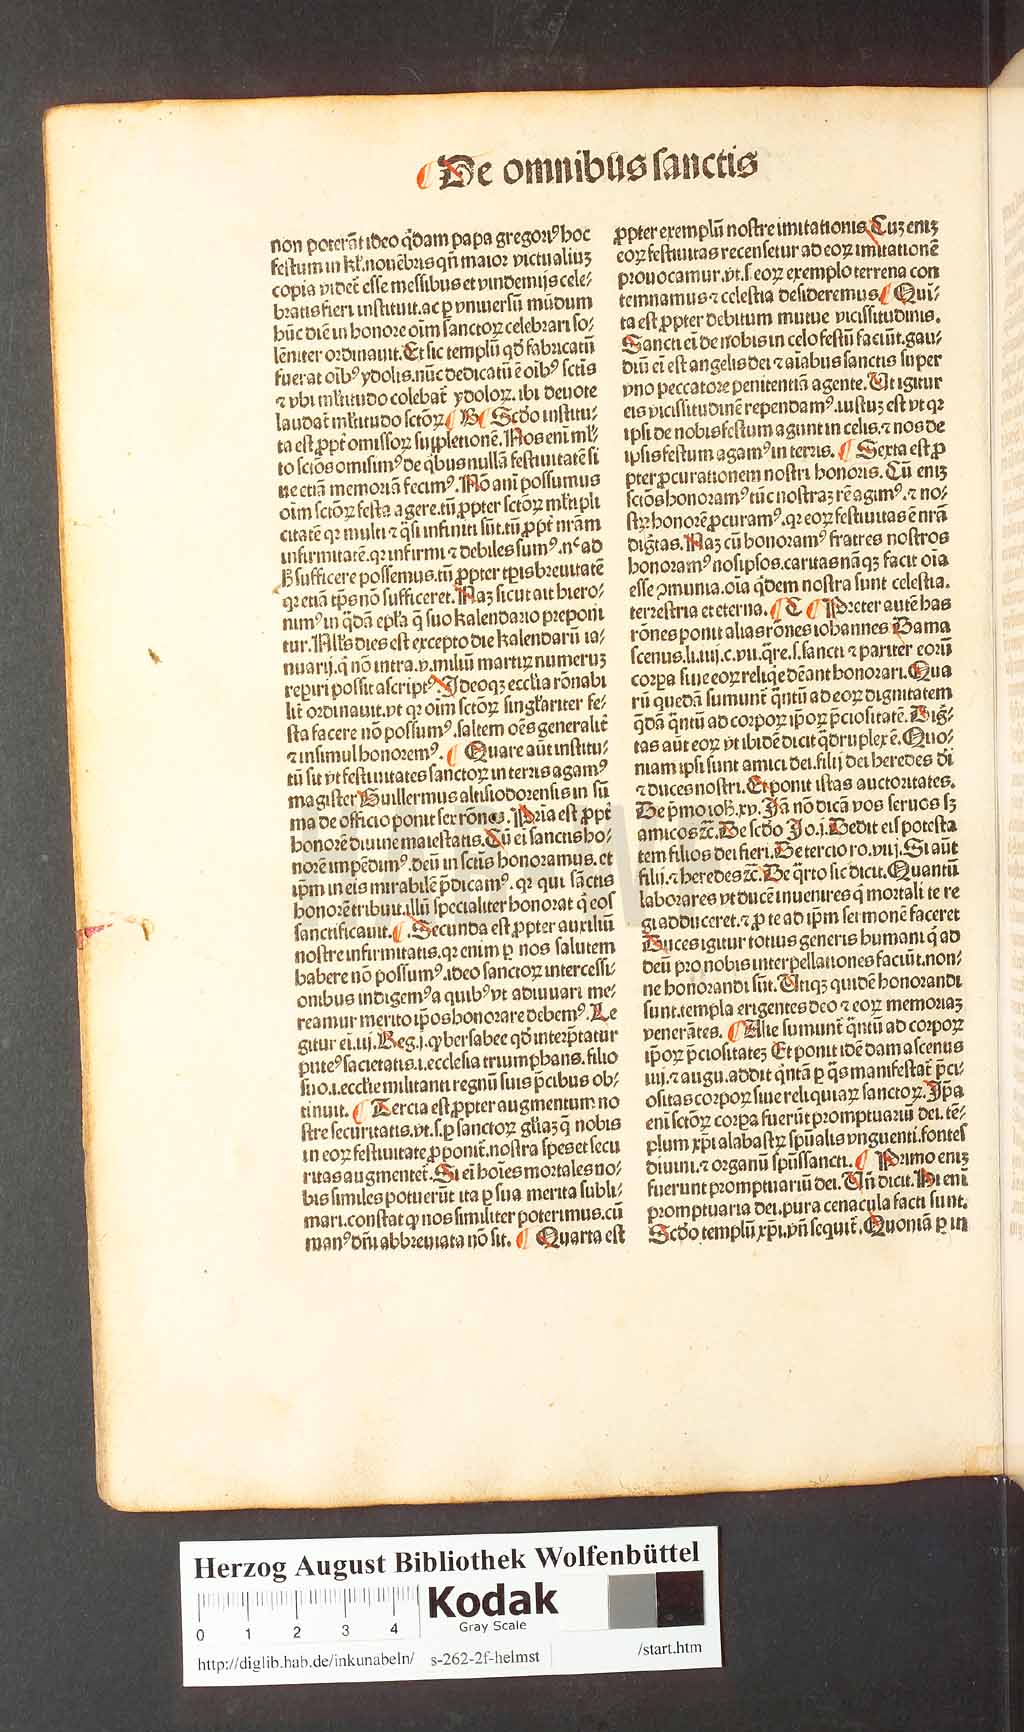 ¶ De omnibus sanctis
non poterāt ideo q̄dam papa gregoriꝰ hoc
festum in kl̄. nouēbris qn̄ maior victualiuꝫ
copia videt̄ esse messibus et vindemijs cele⸗
bratis fieri instituit. ac ꝑ vniuersū mūdum
hūc diē in honore oīm sanctoꝝ celebrari so⸗
lēniter ordinauit. Et sic templū qd̄ fabricatū
fuerat oībꝰ ydolis. nūc dedicatū ē oībꝰ sctis
⁊ vbi ml̄titudo colebat̄ ydoloꝝ. ibi deuote
laudat̄ ml̄titudo sctōꝝ ¶ B ¶ Scd̄o institu⸗
ta est ꝓpt̄ omissoꝝ suppletionē. Nos enī ml̄⸗
to sctōs omisimꝰ de qͥbus nullā festiuitatē si
ue etiā memoriā fecimꝰ. Nō ani possumus
oīm sctōꝝ festa agere. tū ꝓpter sctōꝝ ml̄tipli
citatē qꝛ multi ⁊ q̄si infiniti sūt. tū ꝓpt̄ nrām
infirmitatē. qꝛ infirmi ⁊ debiles sumꝰ. nᶜ ad
h̄ sufficere possemus. tū ꝓpter tꝑis breuitatē
qꝛ etiā tp̄s nō sufficeret. Naꝫ sicut ait hiero⸗
nimꝰ in q̄dā epl̄a q̄ suo kalendario preponi
tur. Null̄s dies est excepto die kalendarū ia⸗
nuarij. q̄ nō intra. v. miliū martiꝝ numeruꝫ
reperiri possit ascriptꝰ. Ideoqꝫ eccl̄ia rōnabi
lit̄ ordinauit. vt qꝛ oīm sctōꝝ singl̄ariter fe⸗
sta facere nō possumꝰ. saltem oēs generalit̄
⁊ insimul honoremꝰ. ¶ Quare aūt institu⸗
tū sit vt festiuitates sanctoꝝ in terris agamꝰ
magister Guillermus altisiodorensis in sū
ma de officio ponit sex rōnes. Prīa est ꝓpt̄
honorē diuine maiestatis. Cū eī sanctis ho⸗
norē impēdimꝰ. deū in sctīs honoramus. et
ip̄m in eis mirabilē p̄dicamꝰ. qꝛ qui sāctis
honorē tribuit. illū specialiter honorat q̄ eos
sanctificauit. ¶ Secunda est ꝓpter auxiliū
nostre infirmitatis. qꝛ enim ꝑ nos salutem
habere nō possumꝰ. ideo sanctoꝝ intercessi⸗
onibus indigemꝰ a quibꝰ vt adiuuari me⸗
reamur merito ip̄os honorare debemꝰ. Le
gitur eī. iij. Reg. j. ꝙ bersabee qd̄ interp̄tatur
puteꝰ sacietatis. i. ecclesia triumphans. filio
suo. i. eccl̄ie militanti regnū suis p̄cibus ob⸗
tinuit. ¶ Tercia est ꝓpter augmentum no
stre securitatis. vt. s. ꝑ sanctoꝝ gl̄iaꝫ q̄ nobis
in eoꝝ festiuitate ꝓponit̄. nostra spes et secu
ritas augmentet̄. Si eī hoīes mortales no⸗
bis similes potuerūt ita ꝑ sua merita subli⸗
mari. constat ꝙ nos similiter poterimus. cū
manꝰ dn̄i abbreuiata nō sit. ¶ Quarta est
ꝓpter exemplū nostre imitationis Cuꝫ eniꝫ
eoꝝ festiuitas recensetur ad eoꝝ imitationē
prouocamur. vt. s. eoꝝ exemplo terrena con
temnamus ⁊ celestia desideremus. ¶ Qui⸗
ta est ꝓpter debitum mutue vicissitudinis.
Sancti eī de nobis in celo festū faciūt. gau⸗
diū eī est angelis dei ⁊ aīabus sanctis super
vno peccatore penitentiā agente. Vt igitur
eis vicissitudinē rependamꝰ. iustuꝫ est vt qꝛ
ipsi de nobis festum agunt in celis. ⁊ nos de
ipsis festum agamꝰ in terris. ¶ Sexta est ꝓ
pter ꝓcurationem nostri honoris. Cū eniꝫ
sctōs honoramꝰ tūc nostraꝫ rē agimꝰ. ⁊ no⸗
stꝝ honorē ꝓcuramꝰ. qꝛ eoꝝ festiuitas ē nrā
dignitas. Naꝫ cū honoramꝰ fratres nostros
honoramꝰ nosipsos. caritas nāqꝫ facit oīa
esse ꝯmunia. oīa q̄dem nostra sunt celestia.
terrestria et eterna. ¶ C ¶ Preter autē has
rōnes ponit alias rōnes iohannes Dama
scenus. li. iiij. c. vij. q̄re. s. sancti ⁊ pariter eorū
corpa siue eoꝝ reliq̄e dēant honorari. Qua
rū quedā sumunt̄ q̄ntū ad eoꝝ dignitatem
q̄dā q̄ntū ad corpoꝝ ip̄oꝝ p̄ciositatē. Dig⸗
tas aūt eoꝝ vt ibidē dicit q̄druplex ē. Quo⸗
niam ipsi sunt amici dei. filij dei heredes di
⁊ duces nostri. Et ponit istas auctoritates.
De p̄mo ioh̄. xv. Iā nō dicā vos seruos sꝫ
amicos ⁊c̄. De scd̄o Jo. j. Dedit eis potesta
tem filios dei fieri. De tercio ro. viij. Si aūt
filij. ⁊ heredes ⁊c̄. De q̄rto sic dicit. Quantū
laborares vt ducē inuenires q̄ mortali te re
gi adduceret. ⁊ ꝓ te ad ip̄m sermonē faceret
Duces igitur totius generis humani q̄ ad
deū pro nobis interpellationes faciūt. non⸗
ne honorandi sūt. Vtiqꝫ quidē honorandi
sunt. templa erigentes deo ⁊ eoꝝ memoriaꝫ
venerātes. ¶ Alie sumunt̄ q̄ntū ad corpoꝝ
ip̄oꝝ p̄ciositateꝫ Et ponit idē damascenus
iiij. ⁊ augu. addit q̄ntā ꝑ q̄s manifestat̄ p̄ci⸗
ositas corpoꝝ siue reliquiaꝝ sanctoꝝ. Ip̄a
enī sctōꝝ corpa fuerūt promptuariū dei. tē⸗
plum xp̄i alabastꝝ sp̄ualis vnguenti. fontes
diuini. ⁊ organū sp̄ussancti. ¶ Primo eniꝫ
fuerunt promptuariū dei. Vn̄ dicit. Hi enī
promptuaria dei. pura cenacula facti sunt.
Scd̄o templū xp̄i. vn̄ sequit̄. Quoniā ꝑ in
Herzog August Bibliothek Wolfenbüttel
0 1 2 3 4
Kodak
Gray Scale
http://diglib.hab.de/inkunabeln/ s-262-2f-helmst /start.htm